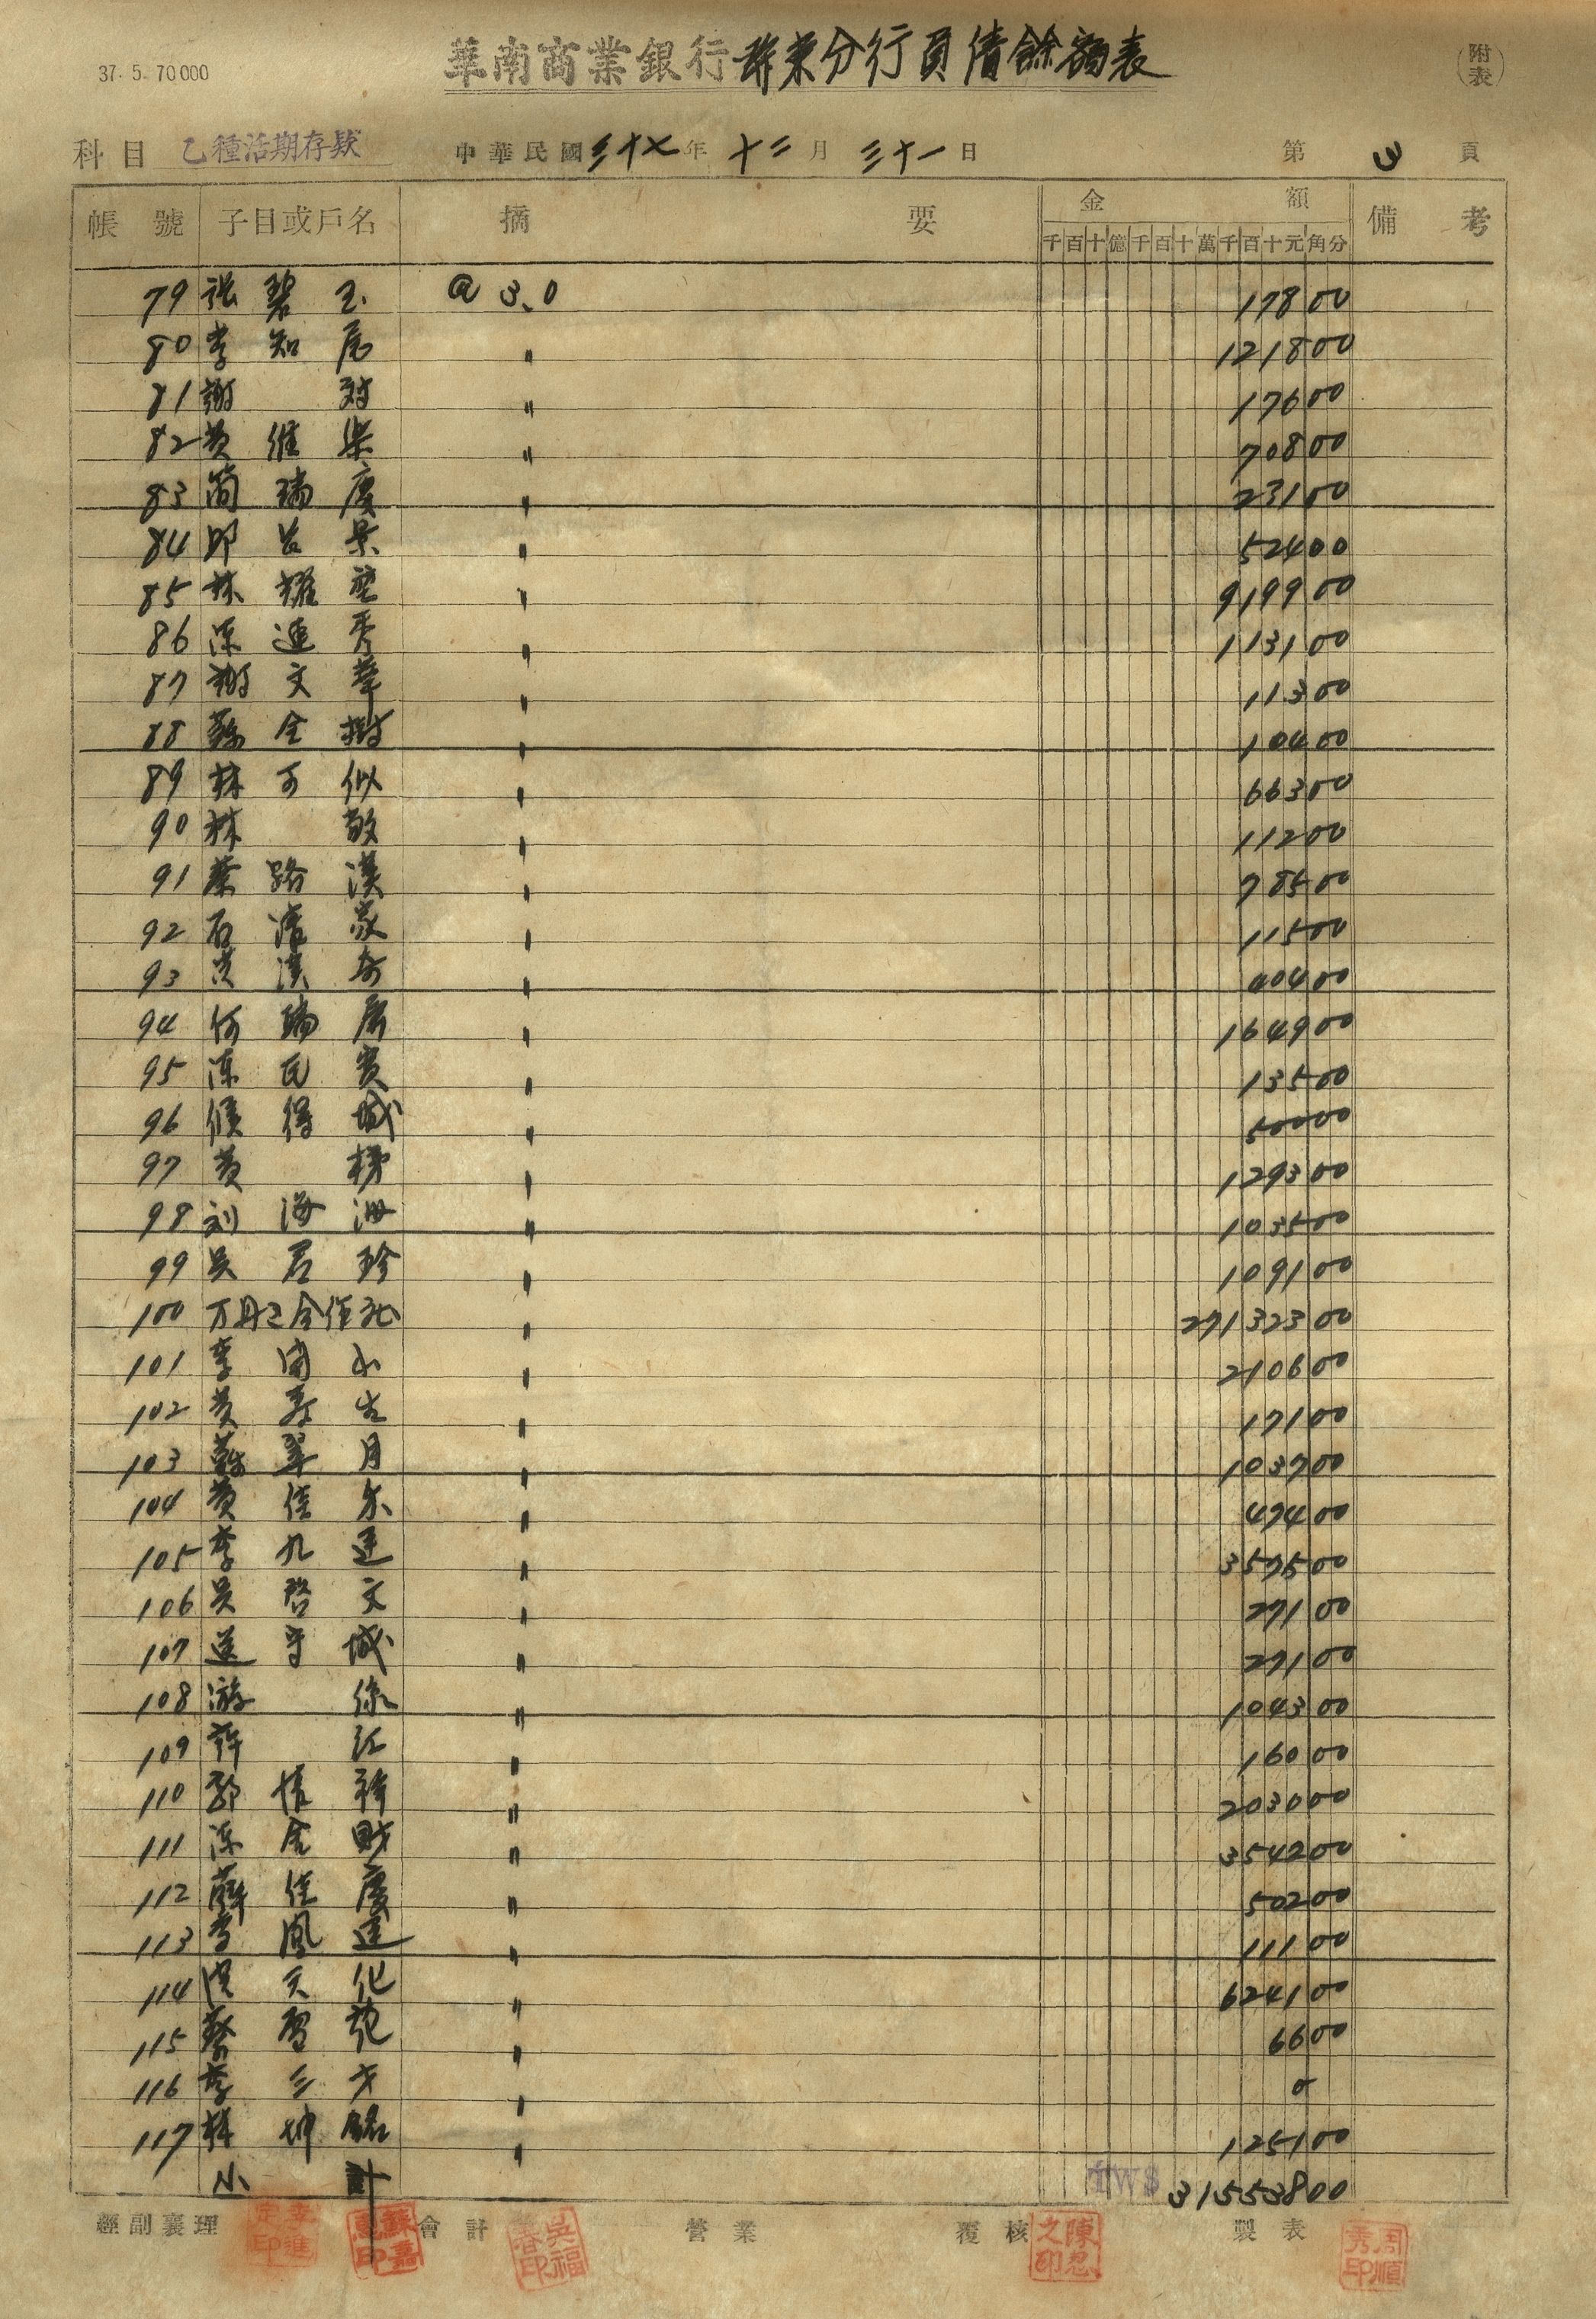 37. 5. 70000
華南商業銀行屏東分行員債餘額表
(附表)
科目 乙種活期存款 中華民國三十七年十二月三十一日 第 3 頁
帳號 子目或戶名 摘要 金額 備考
千百十億千百十萬千百十元角分
79 張碧玉 @ 3.0 17800
80 李知 〃 121800
81 謝 〃 17600
82 黃維 〃 70800
83 簡瑞慶 〃 23100
84 邱 〃 52400
85 林耀 〃 919900
86 陳連秀 〃 113100
87 謝文華 〃 11300
88 蘇金樹 〃 10400
89 林可似 〃 66300
90 林敬 〃 11200
91 蔡路漢 〃 78500
92 石清家 〃 11500
93 黃漢奇 〃 40400
94 何瑞 〃 164900
95 陳民貴 〃 13500
96 候得城 〃 50000
97 黃 〃 129300
98 刘海洲 〃 103500
99 吳君珍 〃 109100
100 万丹合作社 〃 27132300
101 李 〃 210600
102 黃壽 〃 17100
103 蘇翠月 〃 103700
104 黃佳 〃 47400
105 李九連 〃 357500
106 吳啓文 〃 27100
107 守城 〃 27100
108 游 〃 104300
109 許江 〃 16000
110 郭 〃 203000
111 陳金財 〃 354200
112 薛佳慶 〃 50200
113 李鳳連 〃 11100
114 洪天化 〃 624100
115 蔡 〃 6600
116 李三才 〃 0
117 林坤銘 〃 125100
小計 TW$ 31553800
經副襄理 會計 營業 覆核 製表
李進定印
蘇嘉惠印
吳福春印
陳忍之印
周順秀印